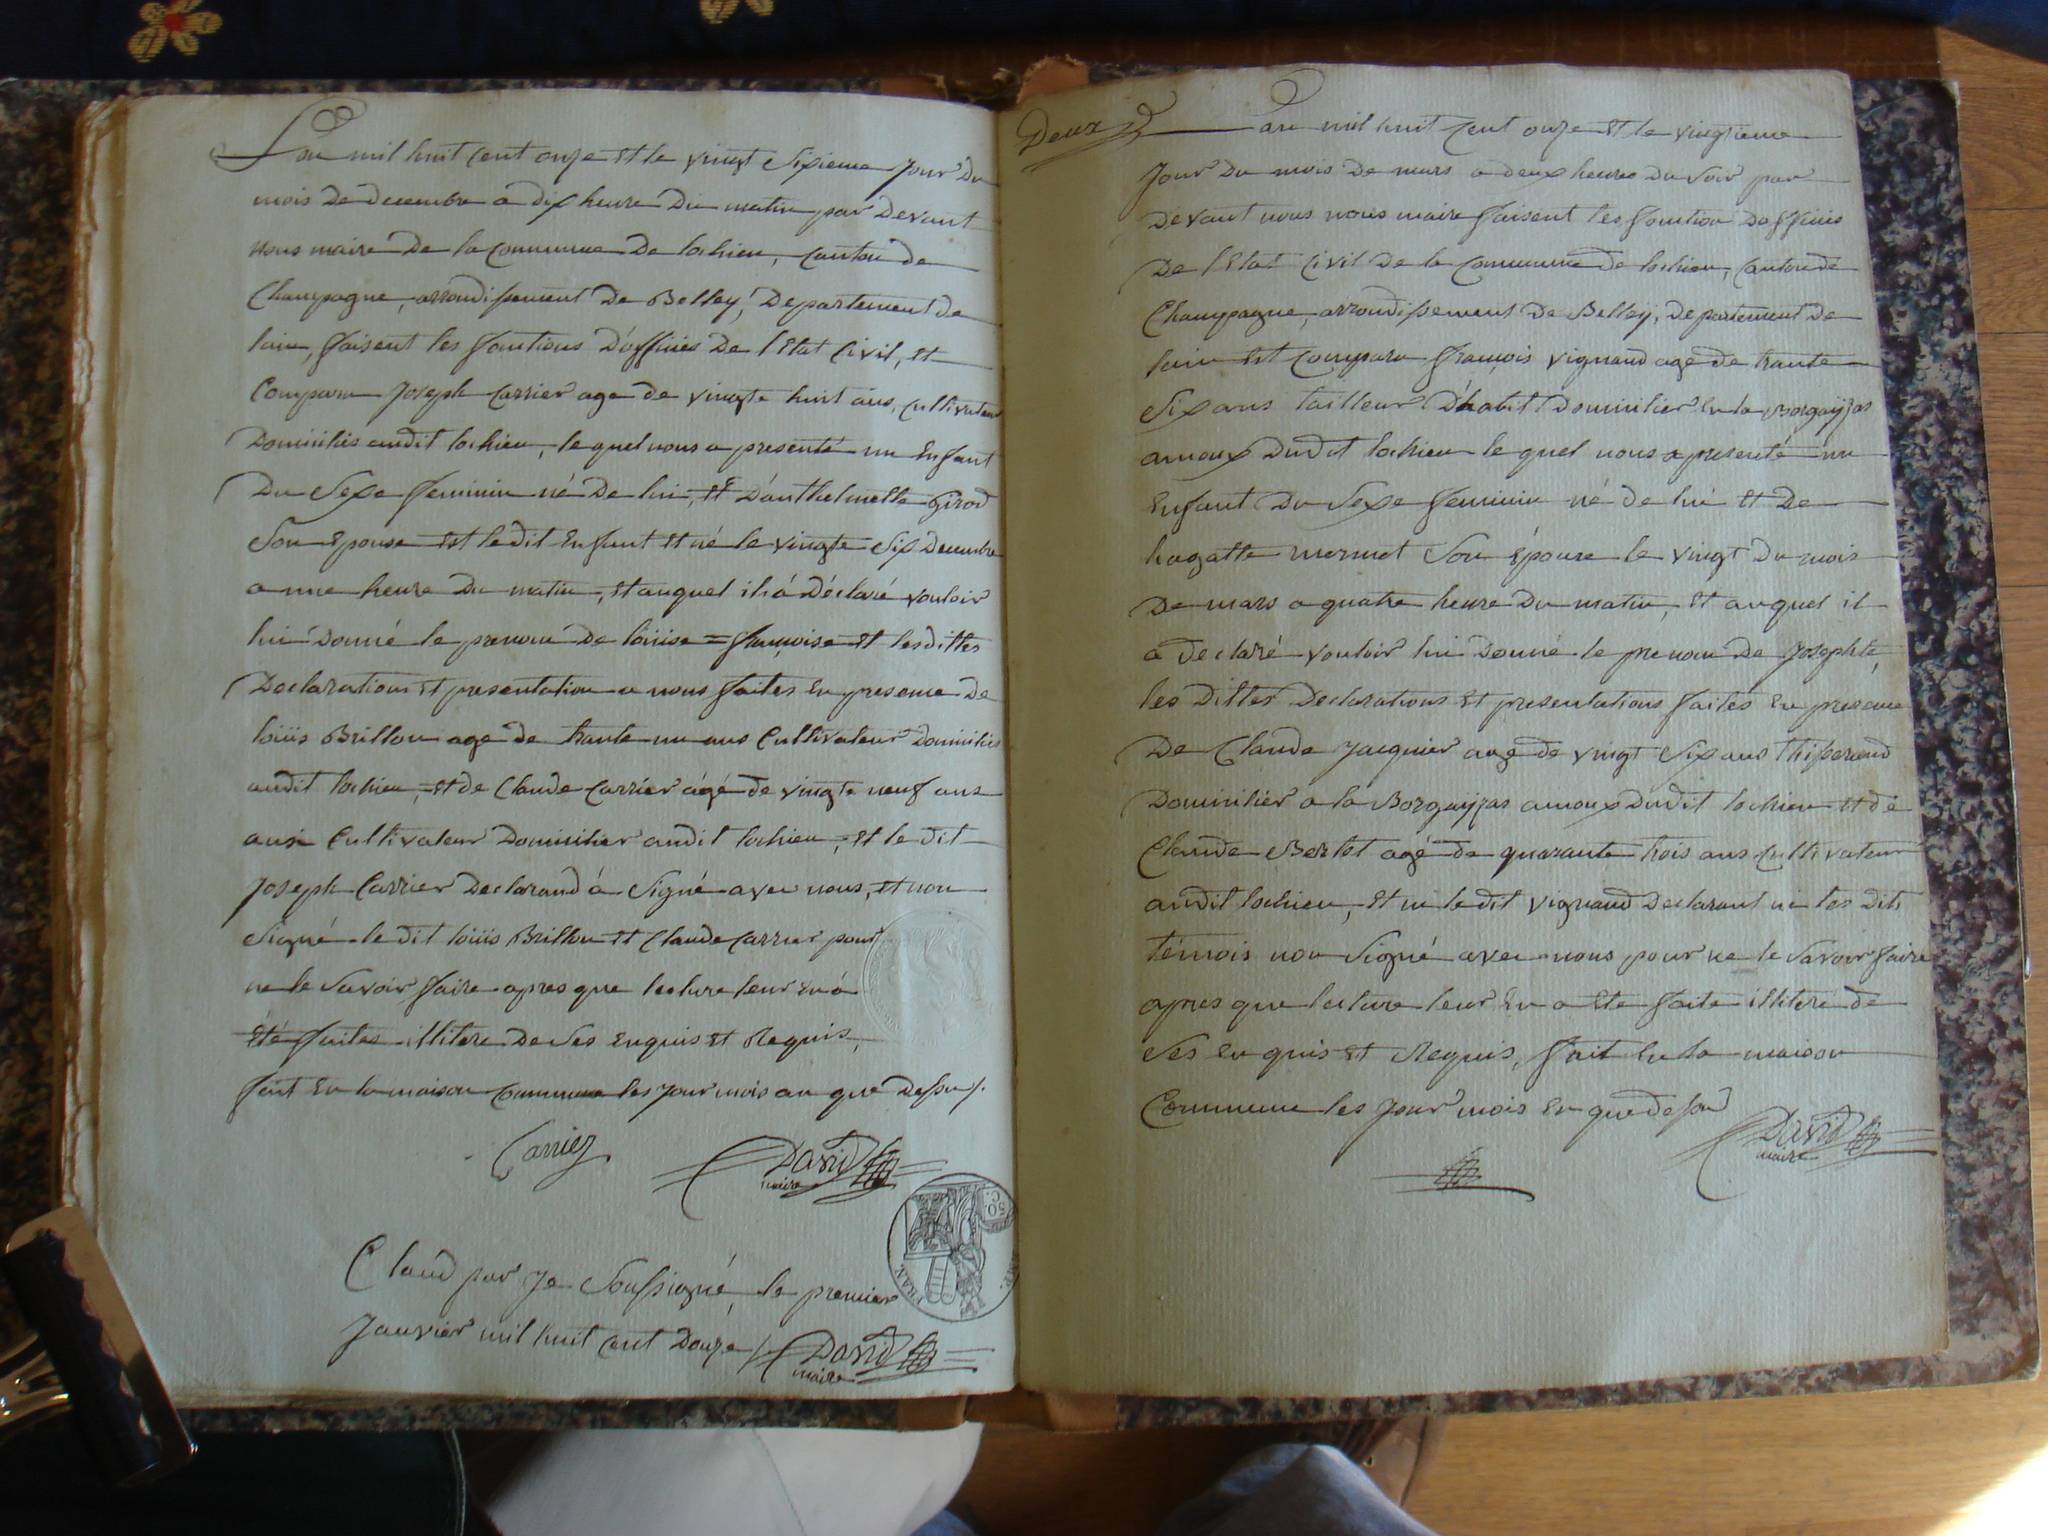 L'an mil huit cent onze et le vingt sixieme jour du
mois de decembre a dix heure du matin par devant
nous maire de la commune de lochieu, canton de
Champagne, arrondissement de Belley, departement de
lain, faisent les fontions d'officies de l'Etat Civil, et
Comparu Joseph Carrier age de vingte huit ans, cultivateur
Domicilies audit lochieu, le quel nous a presenté un Enfant
Du Sexe feminin né de lui, et d'anthelmette Girod
Son Epouse est le dit Enfant et né le vingte Six Decembre
a une heure du matin, et auquel il a déclaré vouloir
lui donné le prenom de loüise = françoise et lesdittes
Declarations et presentation a nous faites en presence de
loüis Brillon age de trante un ans Cultivateur domicilies
audit lochieu, et de Claude Carrier âgé de vingte neuf ans
ausi Cultivateur Domicilier audit lochieu, et le dit
Joseph Carrier Declarand á Signé avec nous, et non
Signé le dit loüis Brillon et Claude Carrier pour
ne le Savoir faire apres que lecture leur en á
été faites illitere de Ses enquis et Requis,
fait en la maison commune les jour mois an que dessus/.
Carrier
David
maire
Claud par Je Soussigné, le premier
Janvier mil huit cent douze
David
maire
50
C.
Deux
L'an mil huit Cent onze et le vingtieme
Jour du mois de mars a deux heures du Soir par
devant nous nous maire faisent les fontion dofficies
de l'Etat Civil de la Commune de lochieu, Canton de
Champagne, arrondissement de Belley, departement de
lain est Comparu françois vignaud agé de trante
Six ans tailleur d'habit domicilier en la
amaux dudit lochieu le quel nous a presenté un
Enfant du Sexe feminin né de lui et de
hagatte mermet Son épouse le vingt du mois
de mars a quatre heure du matin, et auquel il
a declaré vouloir lui donné le prenom de Josephte,
les dittes declarations et presentations faites en presence
de Claude Jacquier agé de vingt Six ans thisserand
Domicilier a la amaux dudit lochieu et de
Claude Bertet agé de quarante trois ans cultivateur
audit lochieu, et ni le dit vignaud declarant ni les dits
témois non Signé avec nous pour ne le Savoir faire
apres que lecture leur en a ete faite illitere de
Ses en quis et Requis, fait en la maison
Commune les Jour mois en que de sous
David
maire